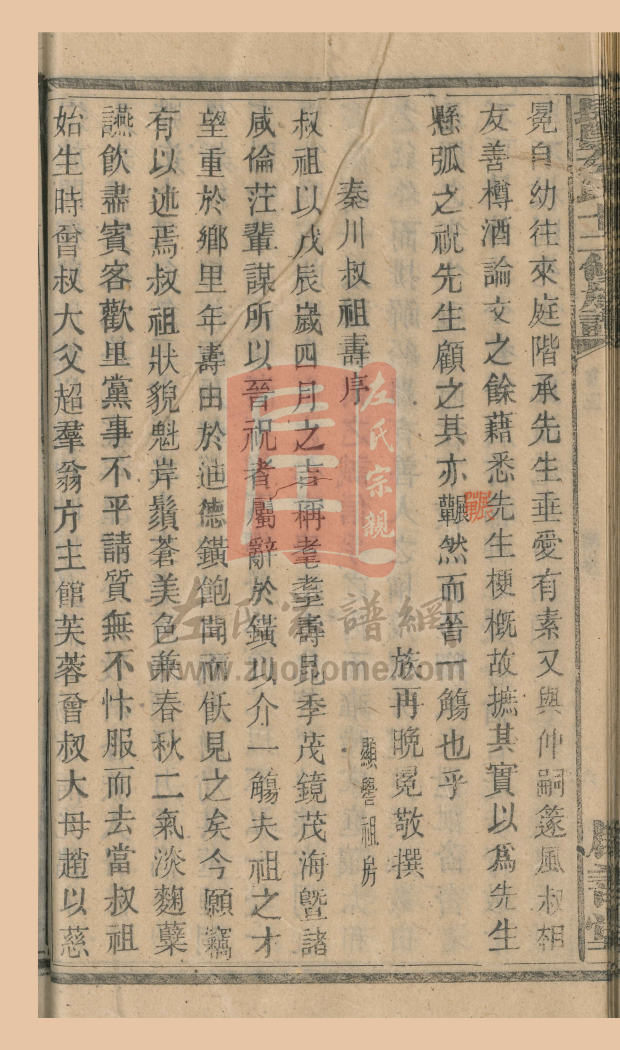 冕自幼往來庭階承先生垂愛有素又與仲嗣篴風叔祖
友善樽酒論文之餘藉悉先生梗概故摭其實以爲先生
懸弧之祝先生顧之其亦囅然而晉一觴也乎
族再晚冕敬撰
秦川叔祖壽序
顯譽祖房
叔祖以戊辰歲四月之吉稱耄耋壽昆季茂鏡茂海暨諸
咸倫茳輩謀所以晉祝者屬辭於鐄以介一觴夫祖之才
望重於鄉里年壽由於迪德鐄飽聞而猒見之矣今願竊
有以述焉叔祖狀貌魁岸鬚蒼美色兼春秋二氣淡麴蘗
讌飲盡賓客歡里黨事不平請質無不忭服而去當叔祖
始生時曾叔大父超羣翁方主館芙蓉曾叔大母趙以慈
左氏宗親
左氏宗譜網
www.zuohome.com